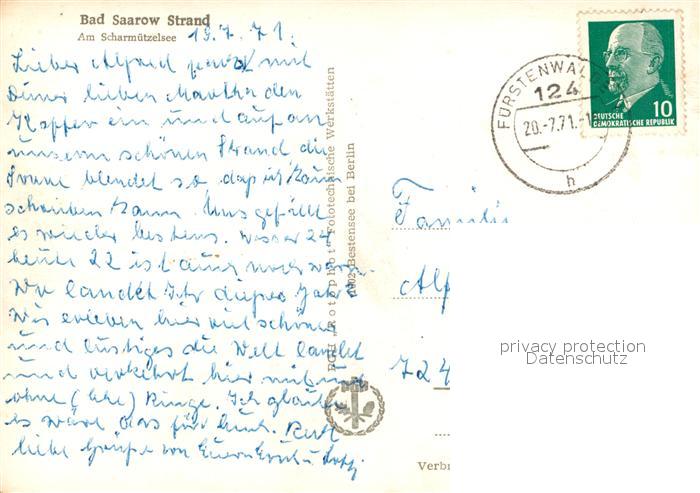 Bad Saarow Strand
Am Scharmützelsee
19.7.71.
Lieber Alfred pack mit
Deiner lieben Martha den
Koffer ein und auf an
unsern schönen Strand die
Sonne blendet so, daß ich kaum
schreiben kann. Uns gefällt
es wieder bestens. Wasser 24
heute 22 ist auch noch warm
Wo landet Ihr dieses Jahr?
Wir erleben hier viel schönes
und lustiges die Welt landet
und verkehrt hier mit und
ohne (Ehe) Ringe. Ich glaube
es wäre was für Euch. Recht
liebe Grüße von Euern Ernst u.
PGH „Rotophot" Fototechnische Werkstätten
1902 Bestensee bei Berlin
FÜRSTENWALDE
124
20.-7.71.-1
h
10
DEUTSCHE
DEMOKRATISCHE REPUBLIK
Familie
Alf
724
privacy protection
Datenschutz
Verbr